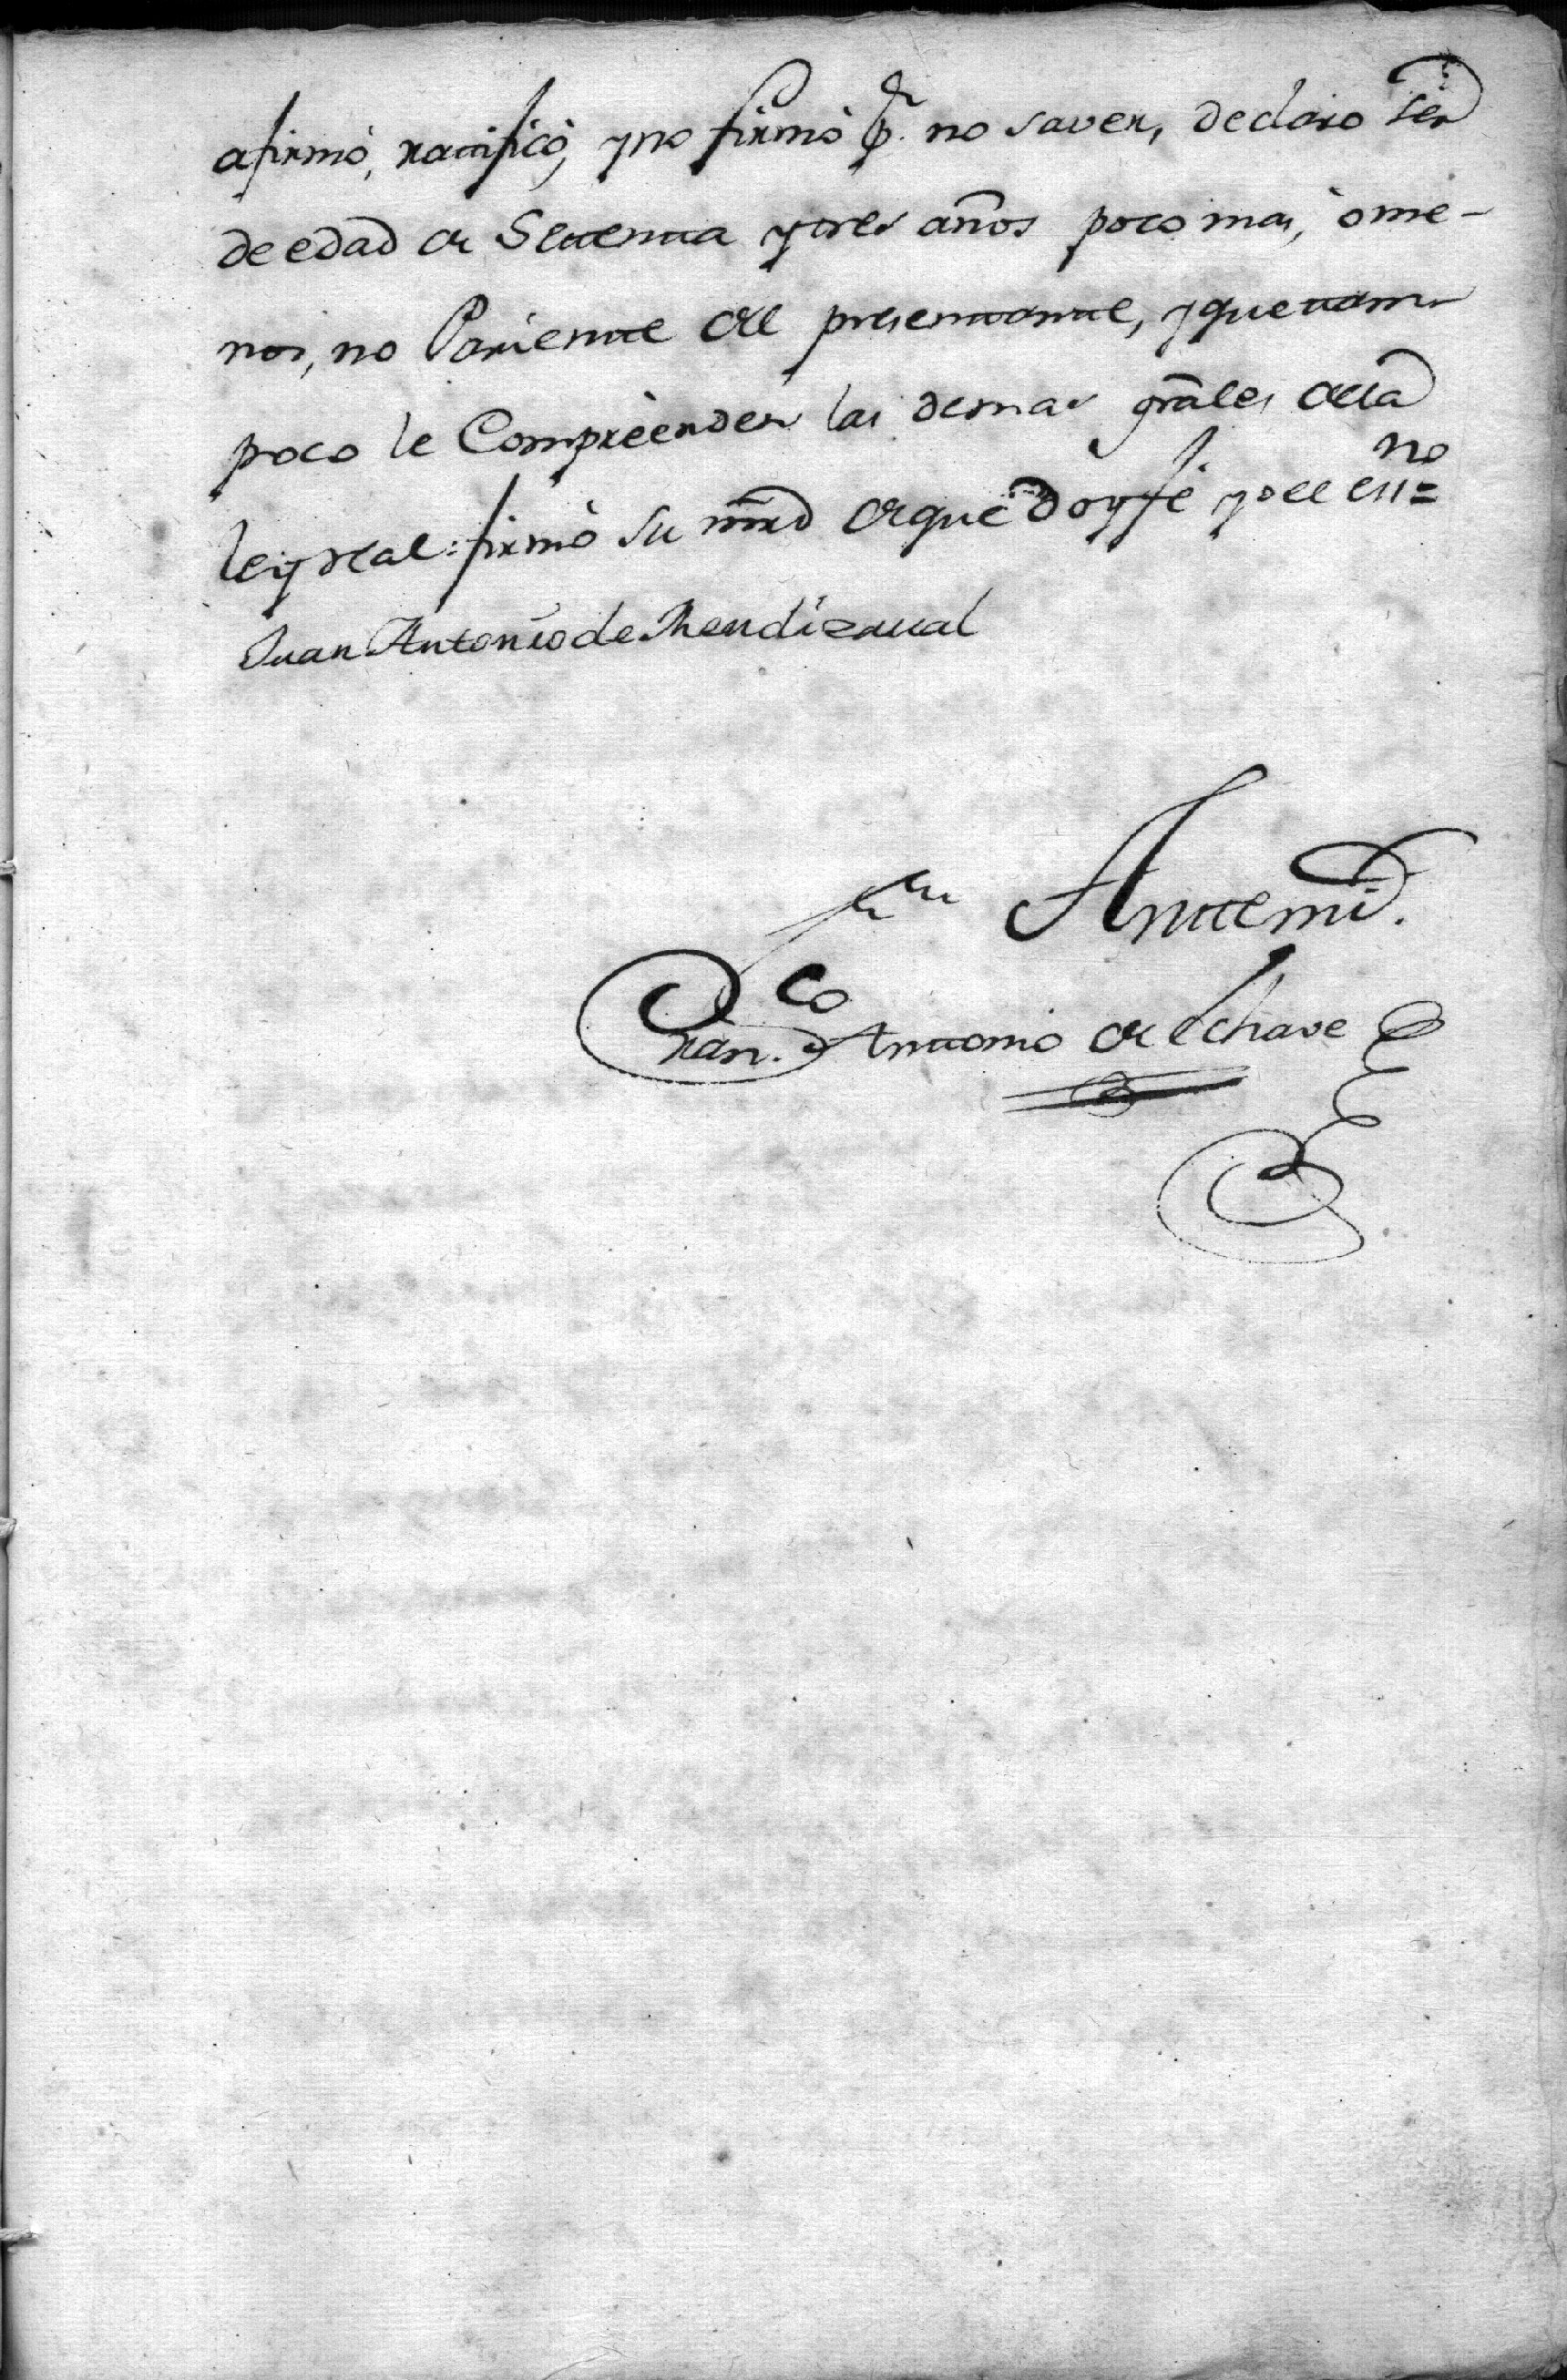 afirmò, ratificò, y no firmò pr. no saver, declaro ser
de edad de Settenta y tres años poco mas, ò me-
nos, no Pariente del presentante, y que tam-
poco le Comprèenden las demas grãles de la
ley real: firmò su mrd de que doy fé yo el essno=
Juan Antonio de Mendizaual
Ante mi.
Franco. Antonio de Echave